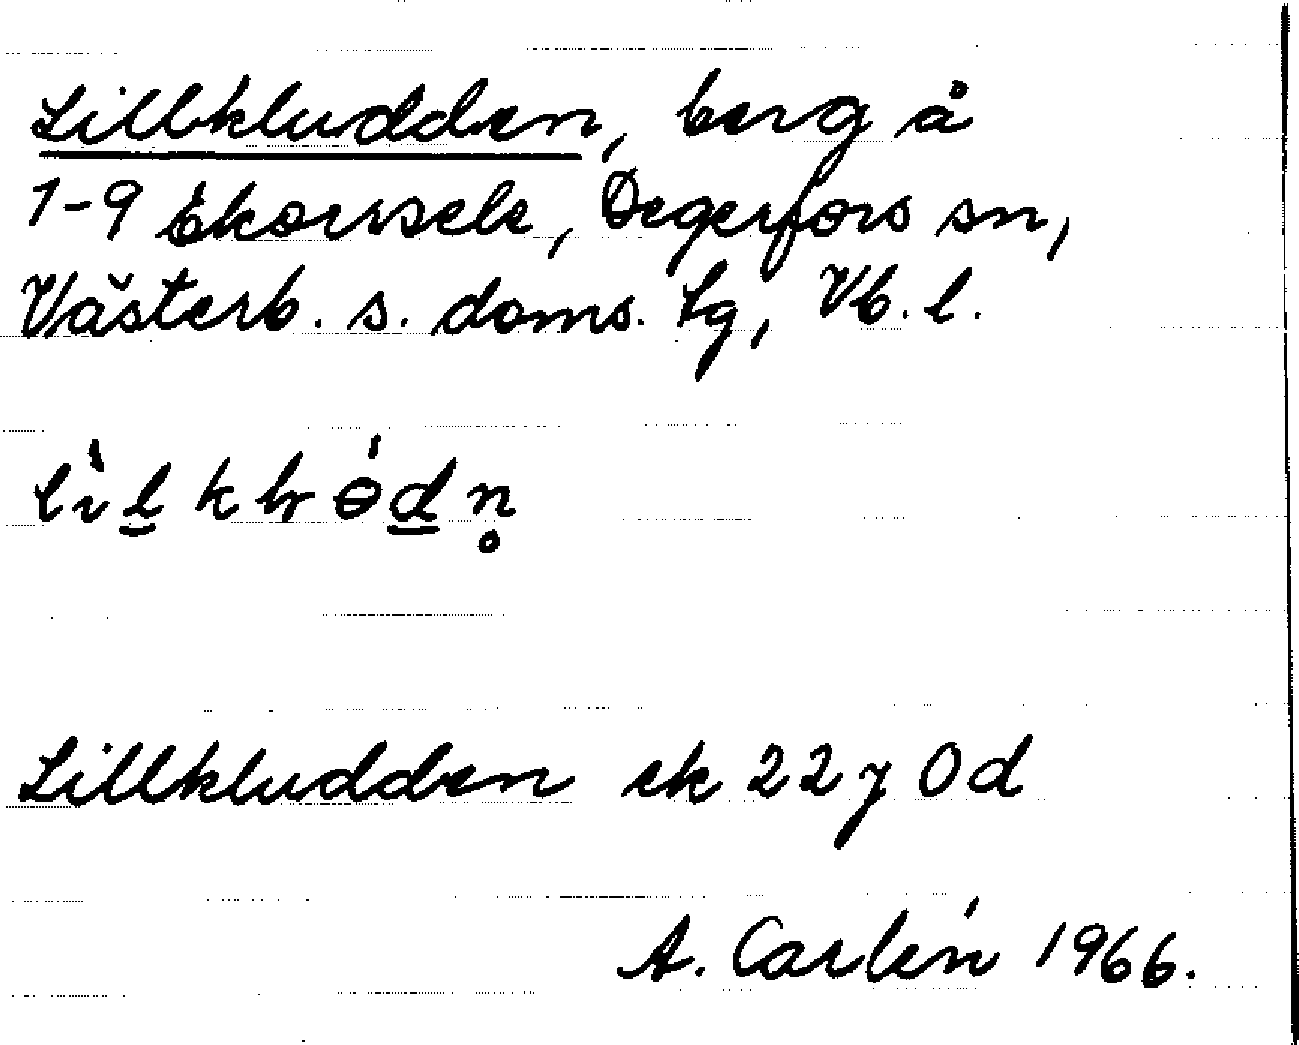 Lillkludden, berg å
1-9 Ekorrsele, Degerfors sn,
Västerb. s. doms. tg, Vb. l.
Lillkludden ek 22 y 0 d
A. Carlén 1966.